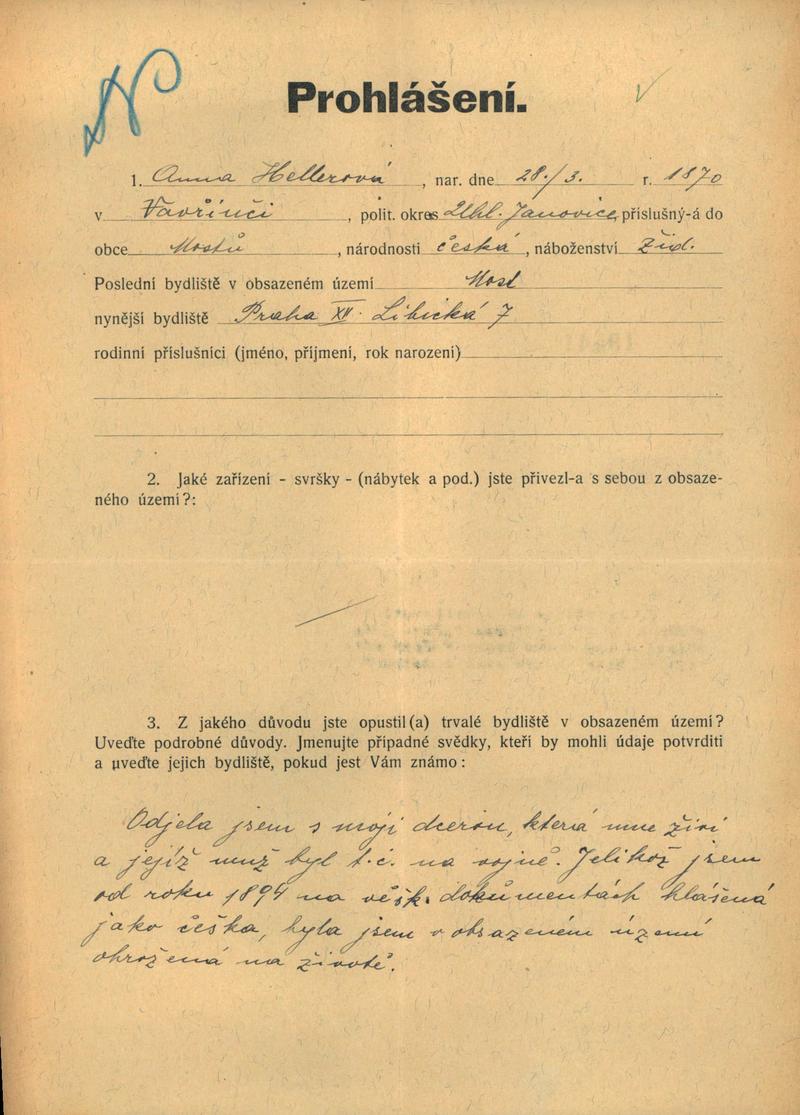 N
Prohlášení.
1. Anna Hellerová, nar. dne 28./3. r. 1870
v Vavřinči, polit. okres Uhl. Janovice, příslušný-á do
obce Mostů, národnosti česká, náboženství Žid.
Poslední bydliště v obsazeném území Most
nynější bydliště Praha XII. Libická 7
rodinní příslušníci (jméno, příjmení, rok narození)
2. Jaké zařízení - svršky - (nábytek a pod.) jste přivezl-a s sebou z obsaze-
ného území?:
3. Z jakého důvodu jste opustil(a) trvalé bydliště v obsazeném území?
Uveďte podrobné důvody. Jmenujte případné svědky, kteří by mohli údaje potvrditi
a uveďte jejich bydliště, pokud jest Vám známo:
Odjela jsem s moji dcerou, která mne živí
a jejíž muž byl t.č. na vojně. Jelikož jsem
od roku 1894 na věšk. dokumentách hlášená
jako češka, byla jsem v obsazeném území
ohrožená na životě.